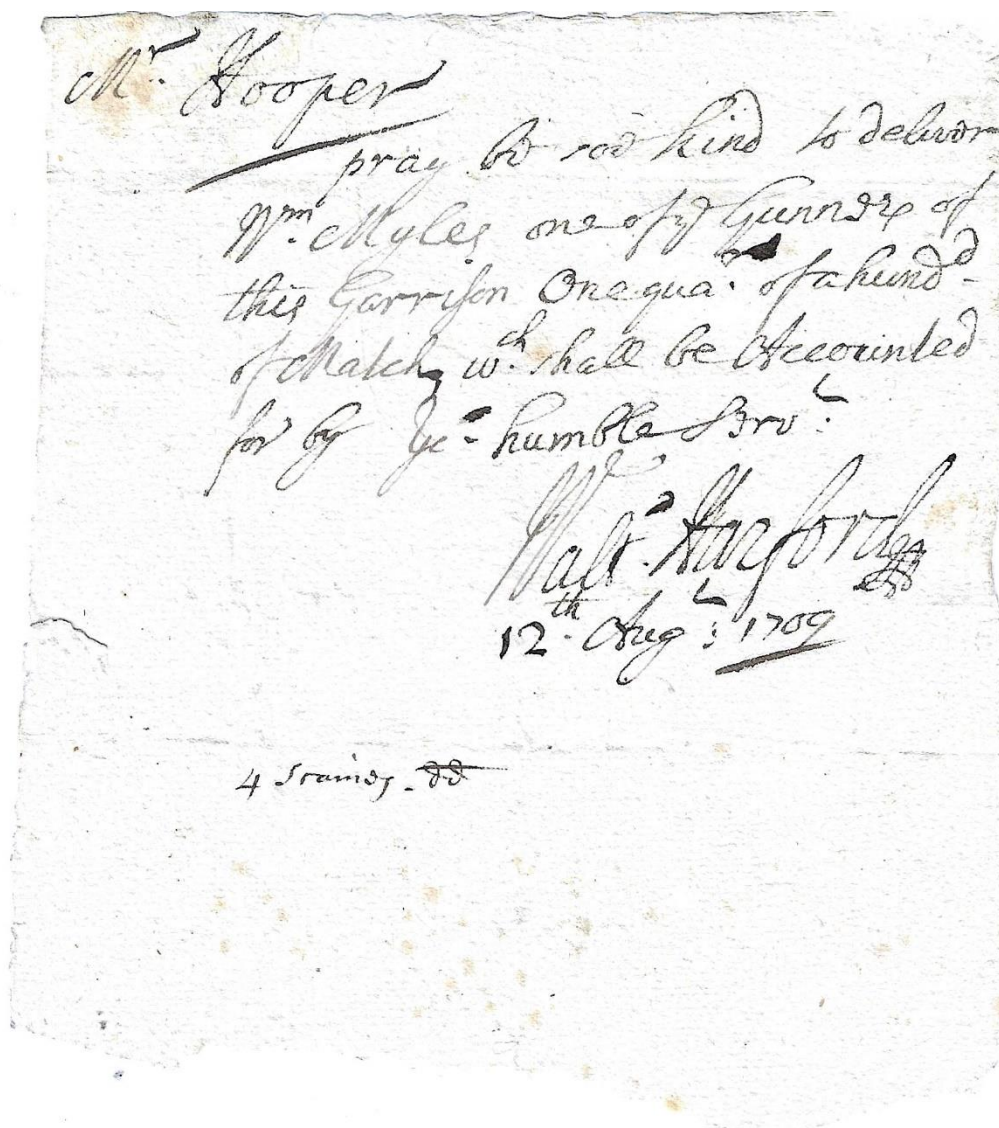 Mr. Hooper
pray be soe kind to deliver
Wm. Myles one of ye Gunners of
this Garrison One quar. of a hundd.
of Match, wch. shall be Accounted
for by Yr. humble Servt.
Walt.
12th. Augt: 1709
4 - dd